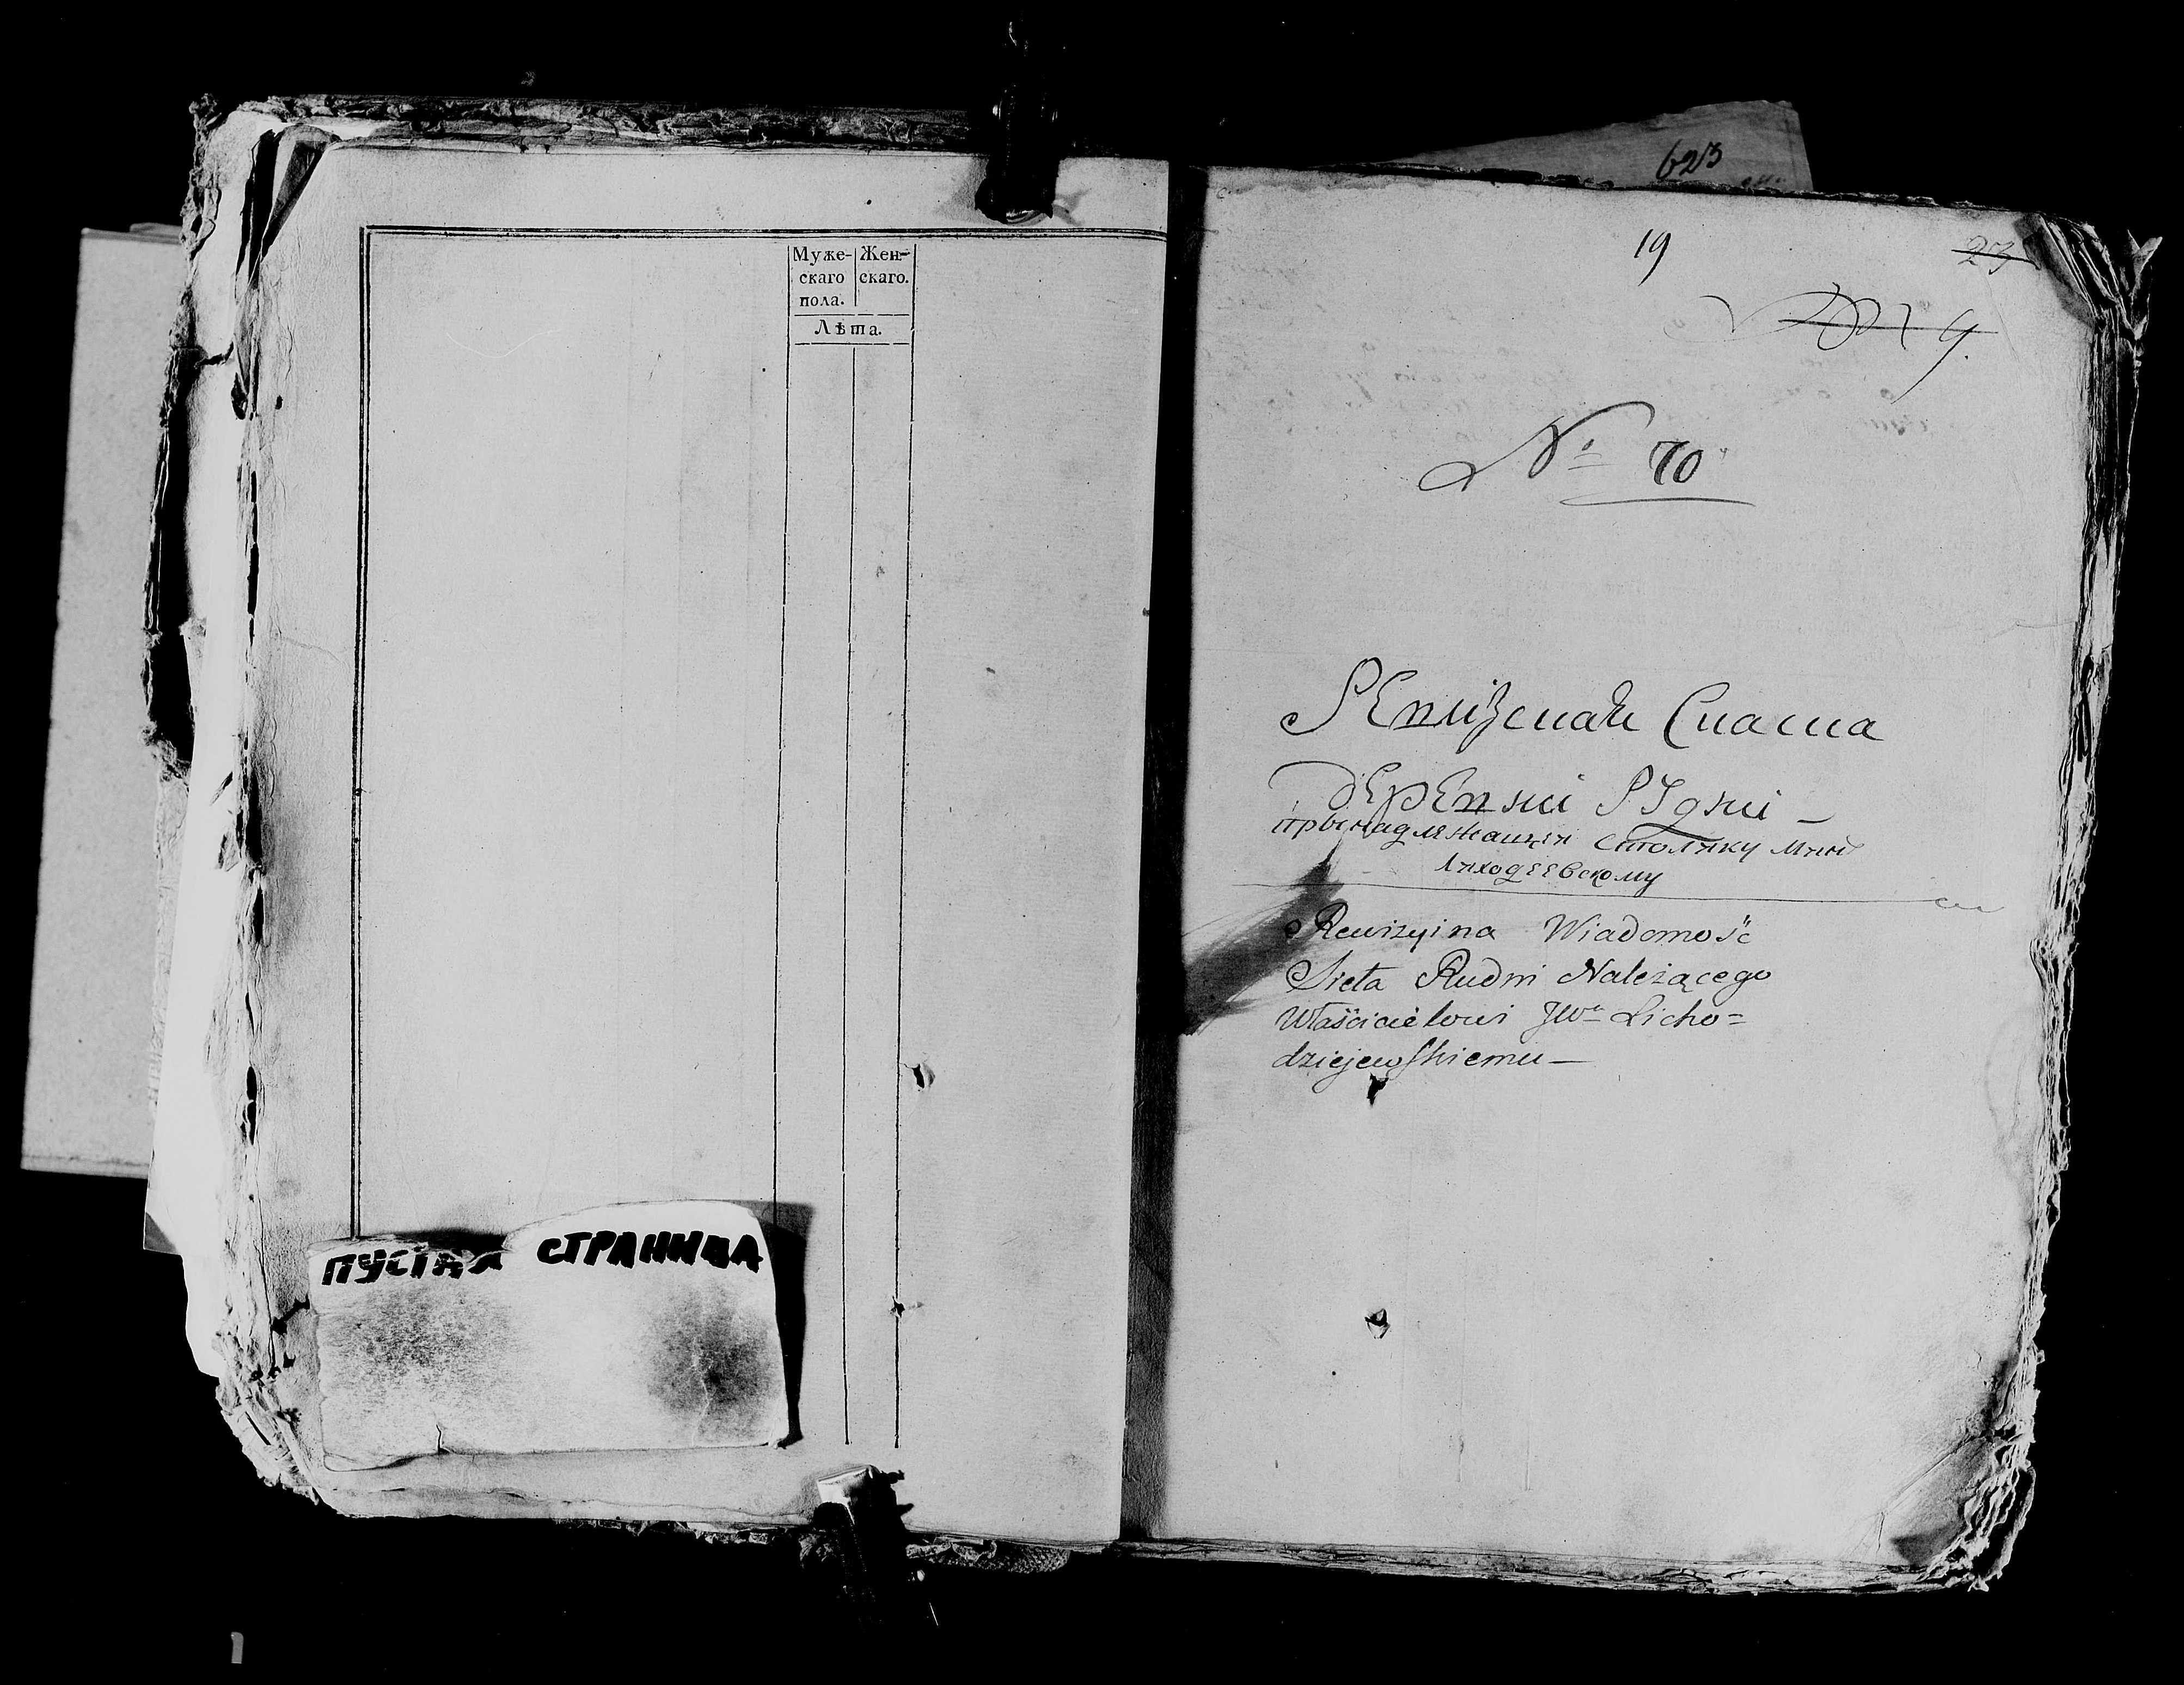 Муже- Жен-
скаго скаго.
пола.
Лѣта.
ПУСТАЯ СТРАНИЦА
623
19
23
9.
№ 70
Ревизская Сказка
деревни Рудни
прынадляжащия Столнку Мин
Ляходеевскому
Rewizyina Wiadomość
Sieła Rudni Należącego
Właścicielowi JWu Licho=
dziejewskiemu—
1